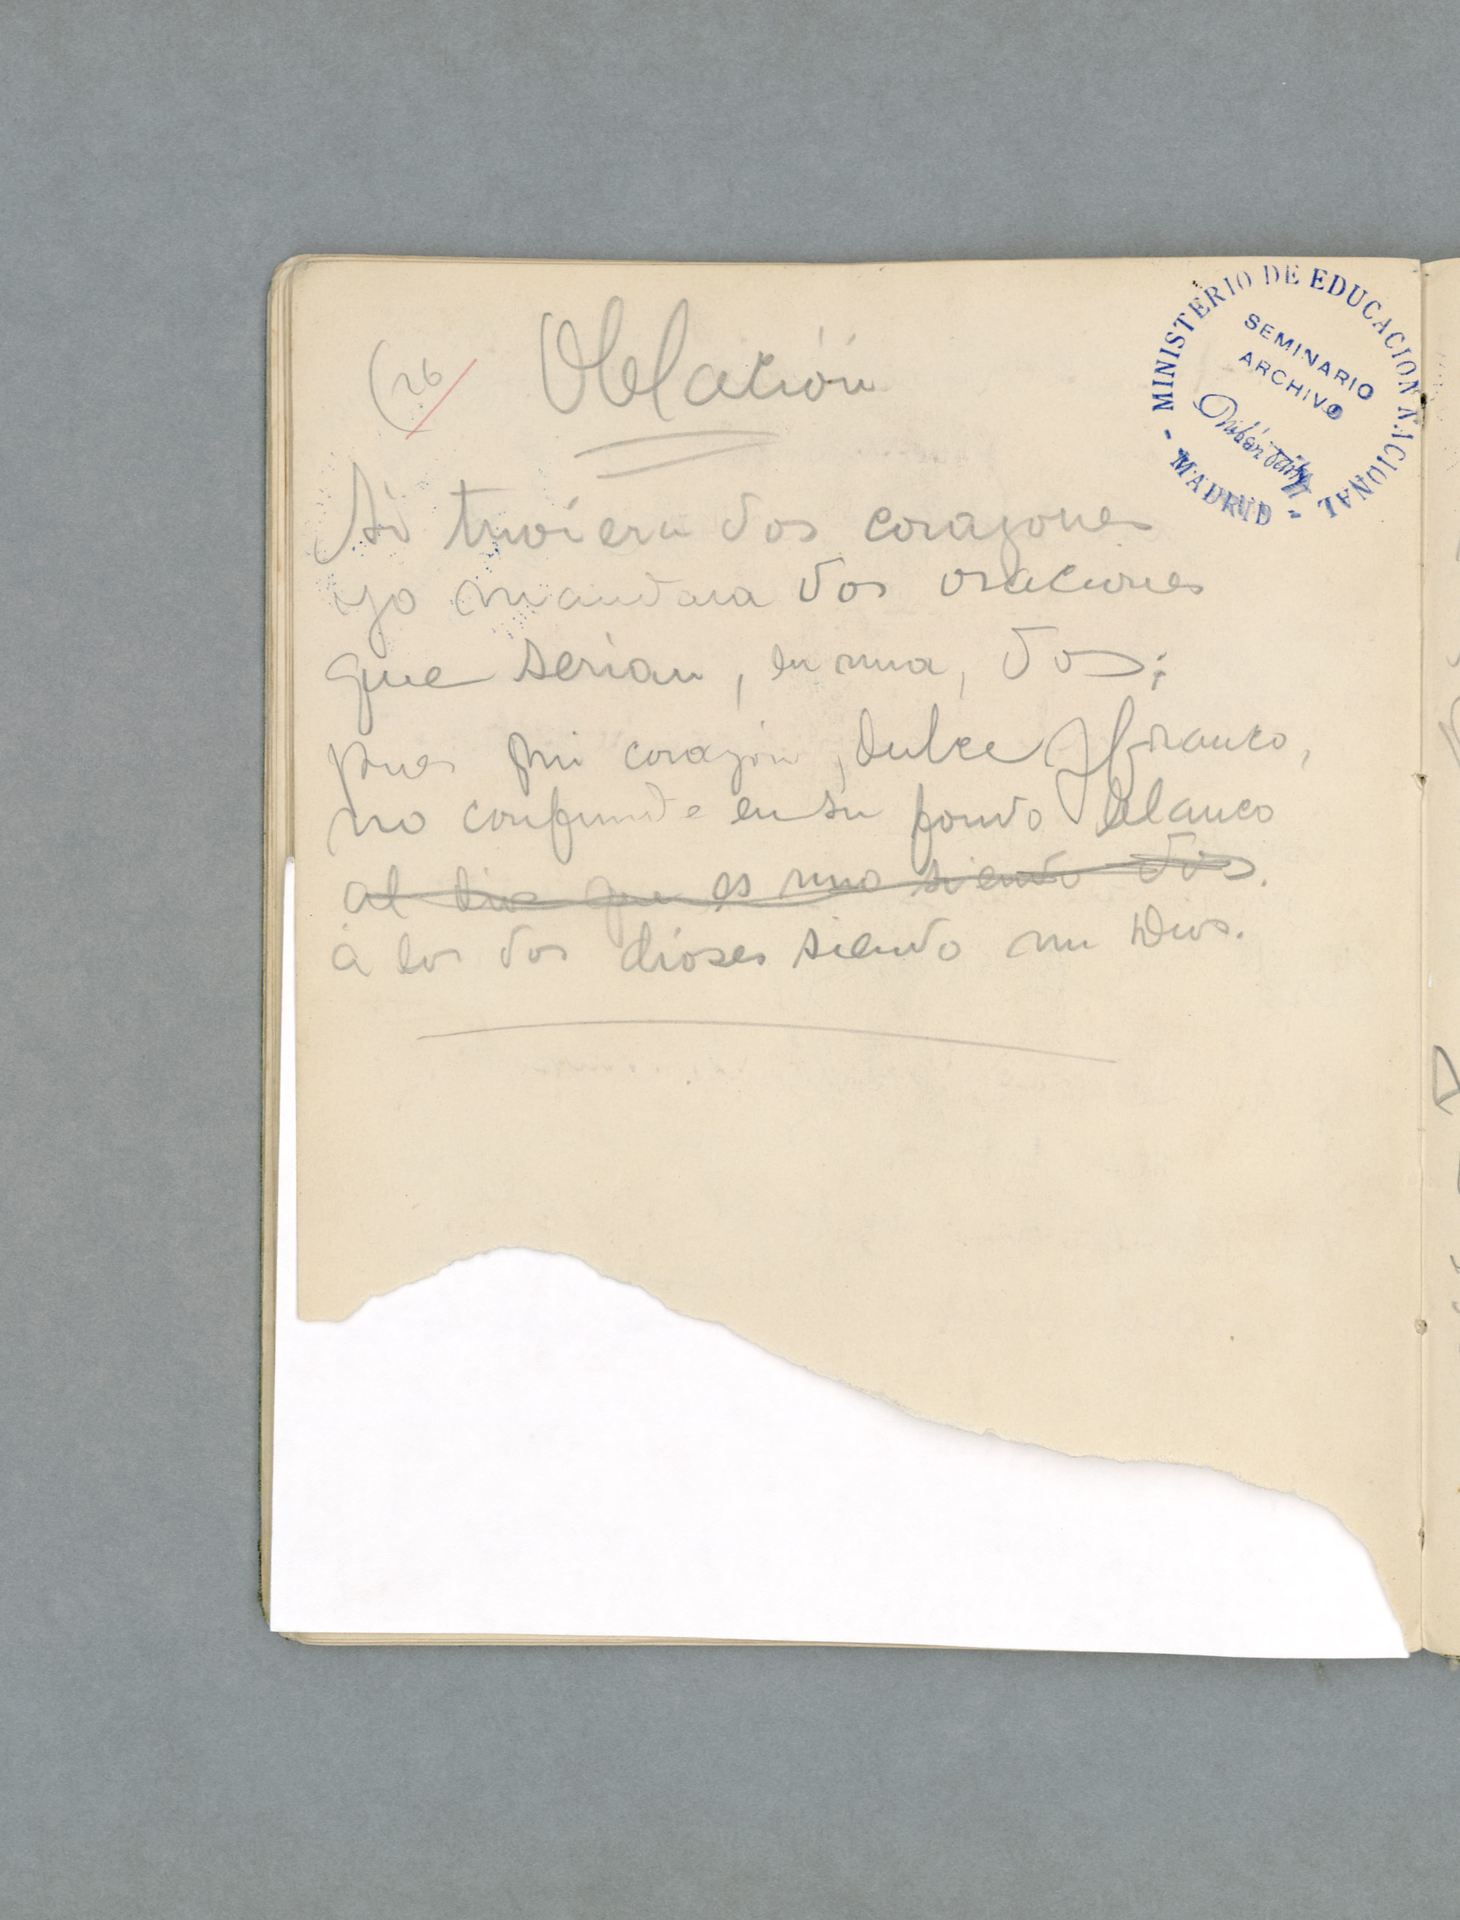 (26
Oblación
Si tuviera dos corazones
yo mandara dos oraciones
que serían, en una, dos;
pues mi corazón, dulce y franco,
no confunde en su fondo blanco
al dios que es uno siendo dos.
á los dos dioses siendo un Dios.
MINISTERIO DE EDUCACION NACIONAL
- MADRID -
SEMINARIO
ARCHIVO
Rubén Darío